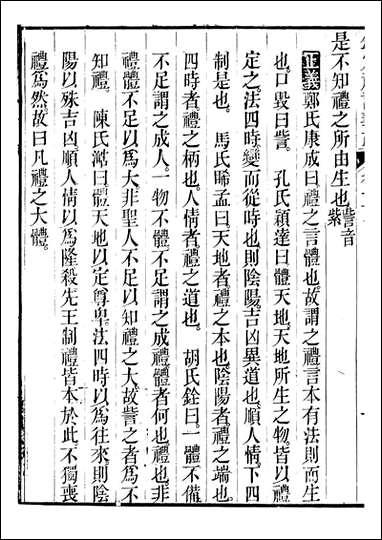 是不知禮之所由生也訾音紫
正義鄭氏康成曰禮之言體也故謂之禮言本有法則而生
也口毀曰訾 孔氏穎達曰體天地天地所生之物皆以禮
定之法四時變而從時也則陰陽吉凶異道也順人情下四
制是也 馬氏睎孟曰天地者禮之本也陰陽者禮之端也
四時者禮之柄也人情者禮之道也 胡氏銓曰一體不備
不足謂之成人一物不體不足謂之成禮體者何也禮也非
禮體不足以為大非聖人不足以知禮之大故訾之者為不
知禮 陳氏澔曰體天地以定尊卑法四時以為往來則陰
陽以殊吉凶順人情以為隆殺先王制禮皆本於此不獨喪
禮為然故曰凡禮之大體